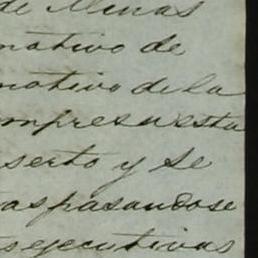 de Minas
motivo de
motivo de la
empresa esta
serto y se
aspasandose
s ejecutivas